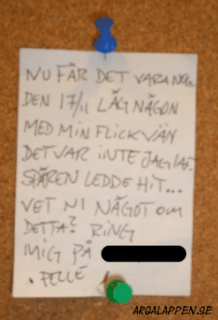 NU FÅR DET VARA NOG.
DEN 17/11 LÅG NÅGON
MED MIN FLICKVÄN
DET VAR INTE JAG IAF.
SPÅREN LEDDE HIT...
VET NI NÅGOT OM
DETTA? RING
MIG PÅ
. PELLE
ARGALAPPEN.SE